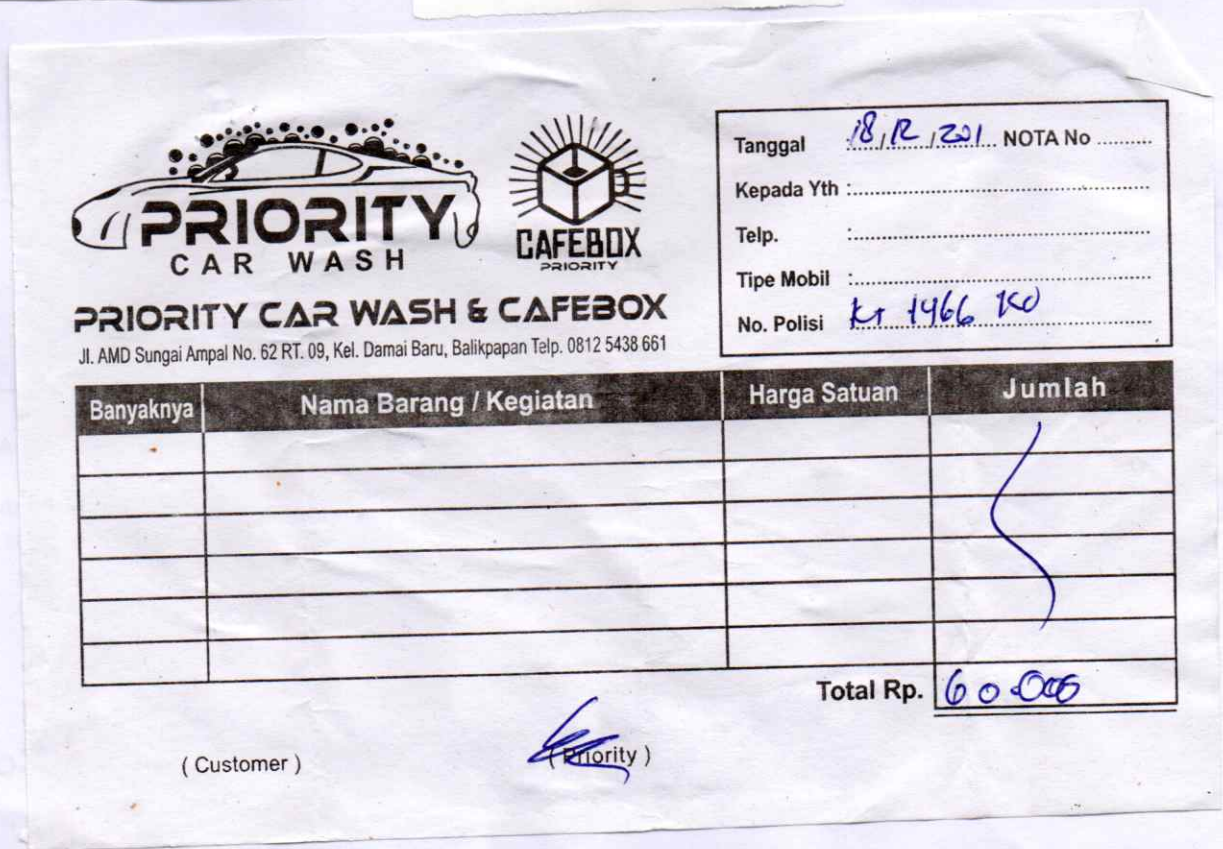 PRIORITY
CAR WASH
CAFEBOX
PRIORITY
PRIORITY CAR WASH & CAFEBOX
Jl. AMD Sungai Ampal No. 62 RT. 09, Kel. Damai Baru, Balikpapan Telp. 0812 5438 661
Tanggal 18/12/201 NOTA No
Kepada Yth :
Telp. :
Tipe Mobil :
No. Polisi KT 1466 KO
Banyaknya Nama Barang / Kegiatan Harga Satuan Jumlah
Total Rp. 60.000
( Customer ) ( Priority )